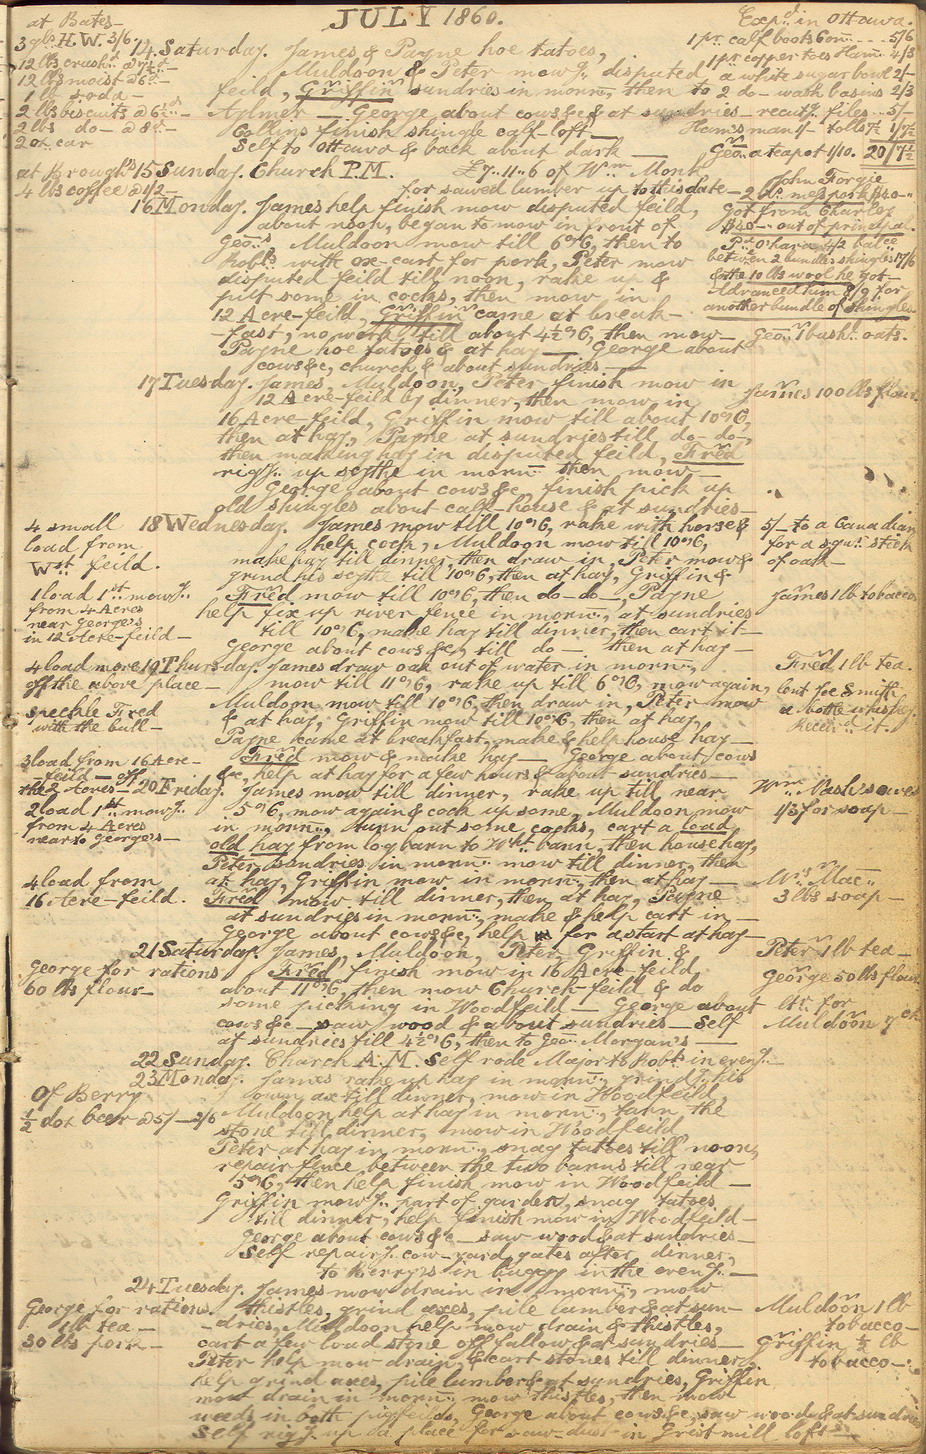 JULY 1860.
at Bates—
3 gls H.W. 3/6
12 lbs crush.d @ 7½d—
12 lbs moist @ 6d—
1 lb soda—
2 lbs biscuits @ 6½d—
2 lbs do— @ 8d—
2 oz. car
at Brough's
4 lbs coffee @ 1/2—
Exp.d in Ottawa.
1 pr. calf boots Com— 5/6
1 pr. copper toes Ham.. 4/3
a white sugar bowl 2/-
2 do— wash basins 2/3
recut.g files 5/-
Hames man 1/- tolls 7½ 1/7½
Geo.. a teapot 1/10. 20/7½
14 Saturday. James & Payne hoe tatoes,
Muldoon & Peter mow.g disputed
feild, Griffin sundries in morn.., then to
Aylmer — George about cows &c & at sundries—
Collins finish shingle calf-loft—
Self to Ottawa & back about dark —
15 Sunday. Church P.M. £7..11..6 of Wm Monk
for sawed lumber up to this date—
John Forgie
2 bls mess pork $40—
got from Charley
$40— out of principal.
Pt O'hara 4/2 balce
between 2 bundles shingles 17/6
& the 10 lbs wool he got—
Advanced him 8/9 for
another bundle of shingles—
16 Monday. James help finish mow disputed feild,
about noon, began to mow in front of
Geo..s Muldoon mow till 6 o'c, then to
Robt.s with ox-cart for pork, Peter mow
disputed feild till noon, rake up &
put some in cocks, then mow in
12 Acre-feild, Griffin came at break-
-fast, no work till about 4½ o'c, then mow—
Payne hoe tatoes & at hay — George about
cows &c, church & about sundries—
Geo..r 1 bush.. oats.
17 Tuesday. James, Muldoon, Peter finish mow in
12 Acre-feild by dinner, then mow in
16 Acre-feild, Griffin mow till about 10 o'c,
then at hay, Payne at sundries till do— do—,
then making hay in disputed feild, Fred
rig.g.. up scythe in morn.. then mow—
George about cows &c finish pick up
old shingles about calf-house & at sundries—
James 100 lbs flour
18 Wednesday. James mow till 10 o'c, rake with horse &
help cock, Muldoon mow till 10 o'c,
make hay till dinner, then draw in, Peter mow &
grind his scythe till 10 o'c, then at hay, Griffin &
Fred mow till 10 o'c, then do— do—, Payne
help fix up river fence in morn.., at sundries
till 10 o'c, make hay till dinner, then cart it—
George about cows &c, till do — then at hay—
4 small
load from
Wst feild.
1 load 1st mow.g
from 4 Acres
near George's
in 12 Acre-feild—
5/- to a Canadian
for a squ.. stick
of oak—
James 1 lb tobacco
19 Thursday. James draw oak out of water in morn..,
mow till 11 o'c, rake up till 6 o'c, mow again,
Muldoon mow till 10 o'c, then draw in, Peter mow
& at hay, Griffin mow till 10 o'c, then at hay,
Payne came at breakfast, make & help house hay—
Fred mow & make hay — George about cows
&c, help at hay for a few hours & about sundries—
4 load more
off the above place—
speckle Fred
with the bull—
Fred 1 lb tea.
lent Joe Smith
a bottle whiskey.
Receiv.d it.
3 load from 16 Acre-
-feild — off
the 2 Acres—
2 load 1st mow.g
from 4 Acres
near to George's—
4 load from
16 Acre-feild.
20 Friday. James mow till dinner, rake up till near
5 o'c, mow again & cock up some, Muldoon mow
in morn.., turn out some cocks, cart a load
old hay from log barn to Wst barn, then house hay,
Peter sundries in morn.. mow till dinner, then
at hay, Griffin mow in morn.., then at hay—
Fred mow till dinner, then at hay, Payne
at sundries in morn.., make & help cart in—
George about cows &c, help for a start at hay—
1/3 for soap—
Mrs Mac..
3 lbs soap—
21 Saturday. James, Muldoon, Peter, Griffin &
Fred finish mow in 16 Acre-feild
about 11 o'c, then mow Church-feild & do
some picking in Woodfeild — George about
cows &c — saw wood & about sundries — Self
at sundries till 4½ o'c, then to Geo.. Morgan's—
George for rations
60 lbs flour—
Peter 1 lb tea—
George 50 lbs flour
ltr. for
Muldoon
22 Sunday. Church A.M. Self rode Major to Robt. in even.g—
23 Monday. James rake up hay in morn.., grind.g his
ax till dinner, mow in Woodfeild,
Muldoon help at hay in morn.., turn the
stone till dinner, mow in Woodfeild
Peter at hay in morn.., snag tatoes till noon,
repair fence between the two barns till near
5 o'c, then help finish mow in Woodfeild —
Griffin mow.g.. part of garden, snag tatoes
till dinner, help finish mow in Woodfeild—
George about cows &c — saw wood & at sundries—
Self repair.g cow-yard gates after dinner,
to Berry's in buggy in the even.g.. —
Of Berry
½ doz beer @ 5/— 2/6
24 Tuesday. James mow drain in morn.., mow
thistles, grind axes, pile lumber & at sun-
-dries, Muldoon help mow drain & thistles,
cart a few load stone off fallow & at sundries—
Peter help mow drain, & cart stones till dinner,
help grind axes, pile lumber & at sundries, Griffin
mow drain in morn.. mow thistles, then mow
weeds in both pigfeilds, George about cows &c, saw wood & at sundries
Self rig.g. up a place for saw-dust in Grist mill loft—
George for rations
1 lb tea—
30 lbs pork—
Muldoon 1 lb
tobacco—
Griffin ½ lb
tobacco—